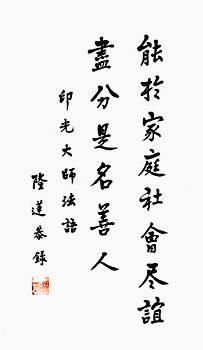 能於家庭社會尽誼
盡分是名善人
印光大師法語
陸蓮恭錄